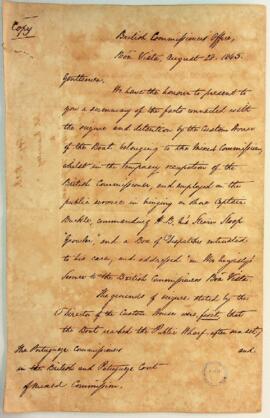 Copy
British Commissioners Office,
Bôa Vista, August 28. 1843.
Gentlemen,
We have the honour to present to
you a summary of the facts connected with
the seizure and detention by the Custom House
of the Boat belonging to the Mixed Commission,
whilst in the temporary occupation of the
British Commissioner, and employed in the
public service in bringing on shore Captain
Buckle, commanding H. B. M's Steam Sloop
"Growler, and a Box of Despatches entrusted
to his care, and addressed "On Her Majesty's
Service to the British Commissioners Bôa Vista.
The grounds of seizure stated by the
Director of the Custom House were, first, that
the Boat reached the Public Wharf, after sunset;
The Portuguese Commissioner and
in the British and Portuguese Court
of Mixed Commission.